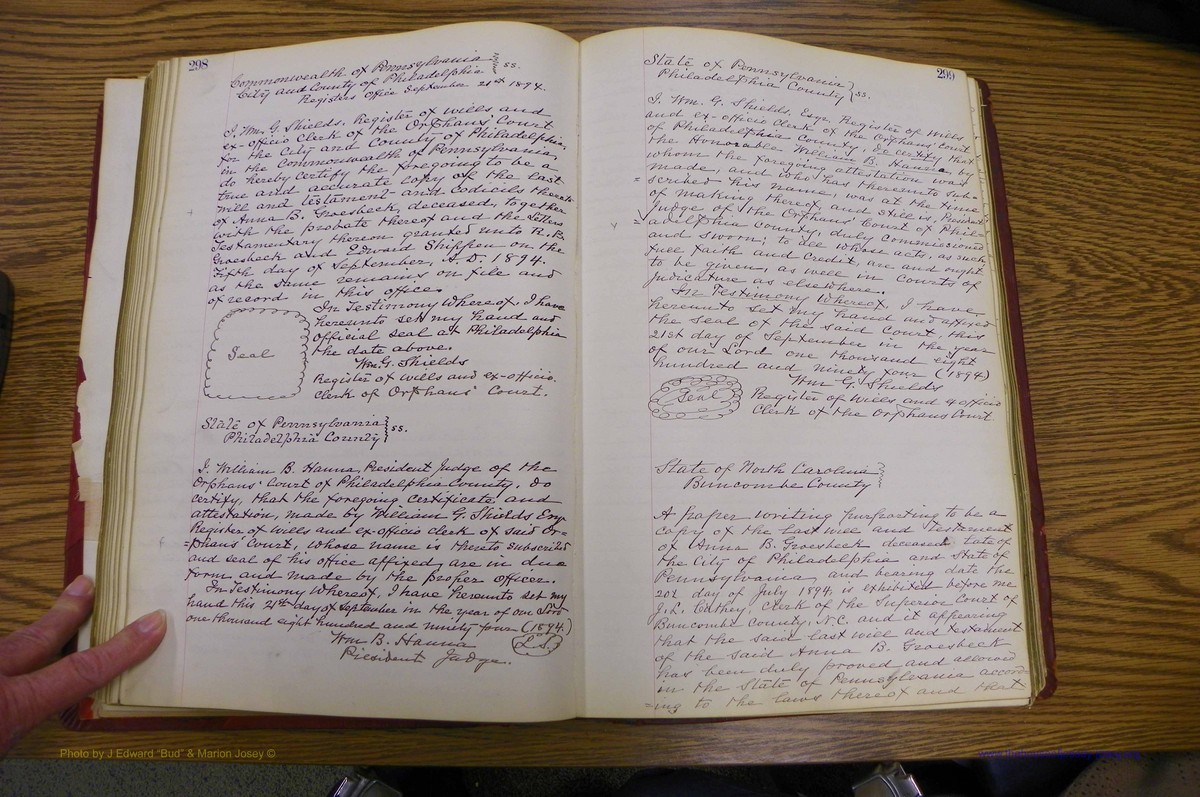 298
Commonwealth of Pennsylvania
City and County of Philadelphia } ss.
Registers Office September 21st 1894.
I, Wm. G. Shields, Register of wills and
ex-officio Clerk of the Orphans' Court
for the City and County of Philadelphia,
in the Commonwealth of Pennsylvania,
do hereby certify the foregoing to be a
true and accurate copy of the last
will and testament and codicils thereto
of Anna B. Groesbeck, deceased, together
with the probate thereof and the Letters
Testamentary thereon granted unto R. B.
Groesbeck and Edward Shippen on the
Fifth day of September, A. D. 1894.
as the same remains on file and
of record in this office.
In Testimony Whereof, I have
hereunto set my hand and
official seal at Philadelphia
the date above.
Seal
Wm. G. Shields
Register of wills and ex-officio
clerk of Orphans' Court.
State of Pennsylvania
Philadelphia County } ss.
I, William B. Hanna, President Judge of the
Orphans' Court of Philadelphia County, do
certify, that the foregoing certificate and
attestation, made by William G. Shields Esq.
Register of wills and ex-officio clerk of said Or=
=phans' Court, whose name is thereto subscribed
and seal of his office affixed, are in due
form and made by the proper officer.
In Testimony Whereof, I have hereunto set my
hand this 21st day of September in the year of our Lord
one thousand eight hundred and ninety four (1894.)
Wm B. Hanna
L.S.
President Judge.
299
State of Pennsylvania
Philadelphia County } ss.
I, Wm. G. Shields, Esqr. Register of Wills
and ex-officio Clerk of the Orphans' Court
of Philadelphia County, do certify that
the Honorable William B. Hanna by
whom the foregoing attestation was
made, and who has thereunto sub-
=scribed his name, was at the time
of making thereof, and still is, President
Judge of the Orphans' Court of Phil-
=adelphia County, duly commissioned
and sworn; to all whose acts, as such
full faith and credit, are and ought
to be given, as well in Courts of
Judicature as elsewhere.
In Testimony Whereof, I have
hereunto set my hand and affixed
the seal of the said Court, this
21st day of September in the year
of our Lord one thousand eight
hundred and ninety four (1894)
Wm G. Shields
Seal
Register of Wills, and ex officio
Clerk of the Orphans Court.
State of North Carolina
Buncombe County }
A paper writing purporting to be a
copy of the last will and Testament
of Anna B. Groesbeck deceased late of
the City of Philadelphia and State of
Pennsylvania, and bearing date the
20th day of July 1894, is exhibited before me
J. L. Cathey, Clerk of the Superior Court of
Buncombe County, N.C. and it appearing
that the said last will and testament
of the said Anna B. Groesbeck
has been duly proved and allowed
in the State of Pennsylvania accord-
=ing to the laws thereof and that
Photo by J Edward "Bud" & Marion Josey ©